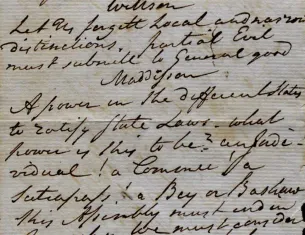 Willson
Let Us forgett Local and narrow
distinctions. partial Evil
must submit to General good
Maddisson
A power in the different States
to ratify State Laws - what
power is this to be? an Indi-
vidual! a Comittee! a
Satrapass! a Bey or Bashaw
this Assembly must
We must consider